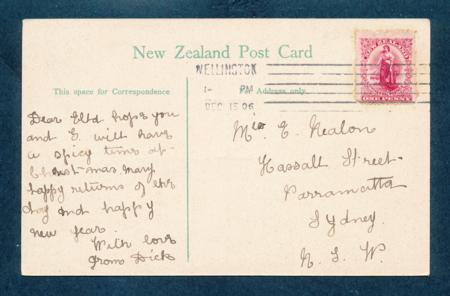 New Zealand Post Card
WELLINGTON
1- PM
DEC 15 06
NEW ZEALAND
ONE PENNY
This space for Correspondence
Address only.
Dear hope you
and E. will have
a spicy time at
Christmas many
happy returns of the
day and happy
new year.
With love
from Dick
Miss E. Nealon
Hassall Street
Parramatta
Sydney.
N. S. W.